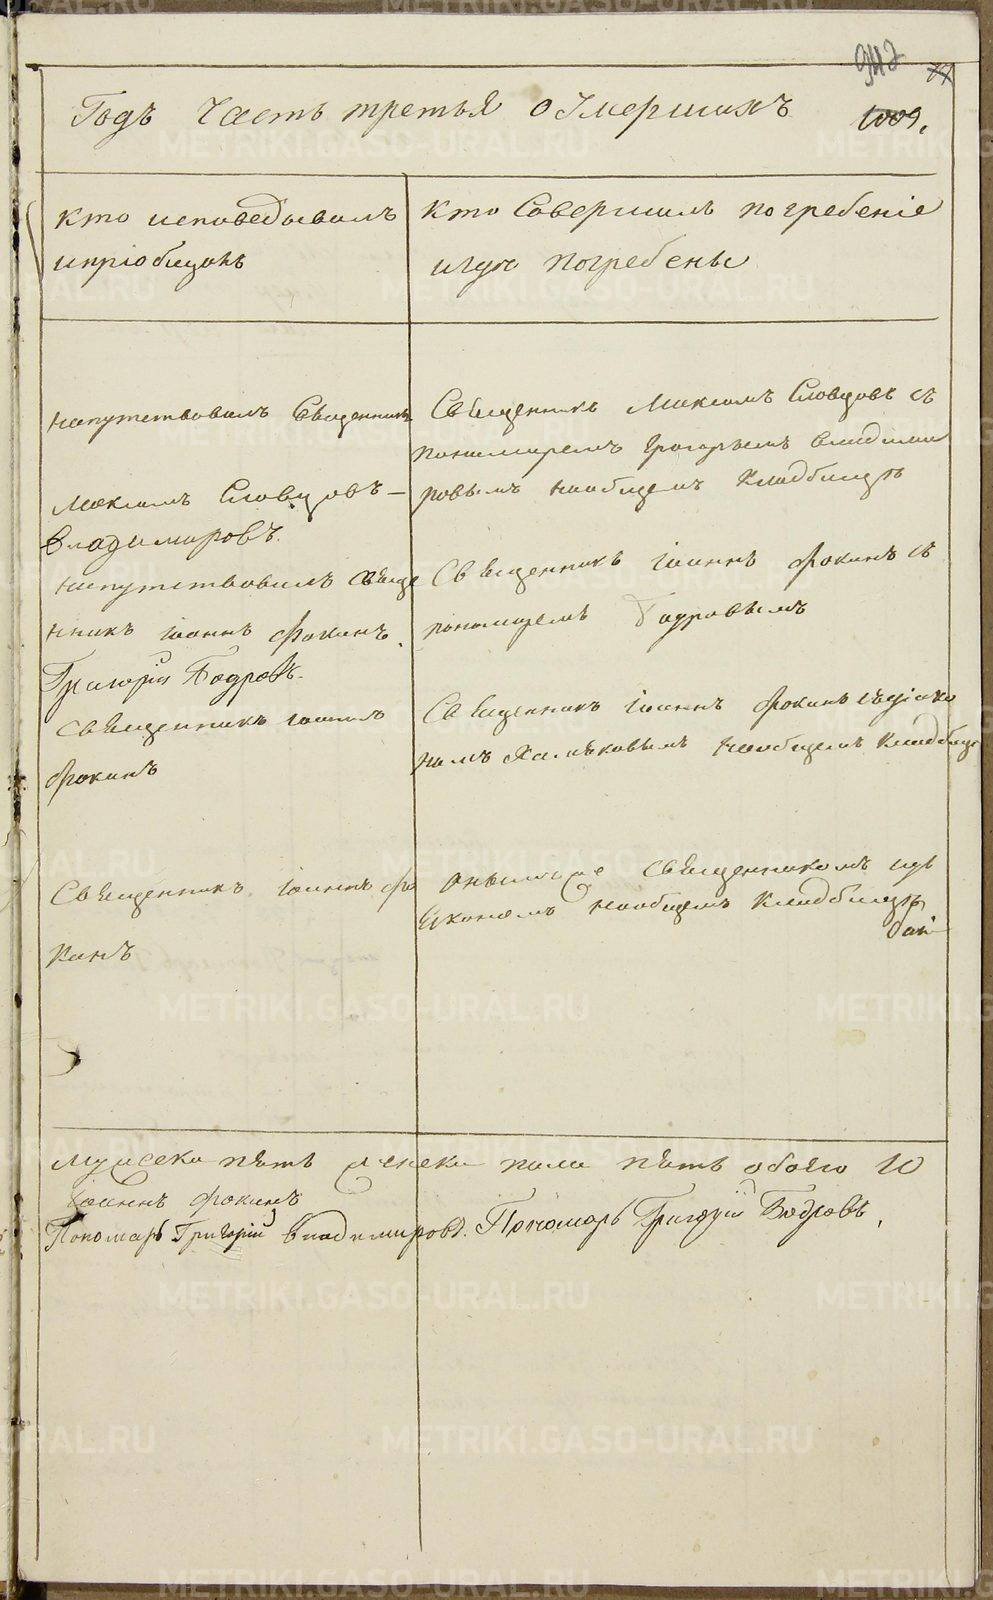 942
Годъ Часть третья о Умершихъ 1009.
Кто исповедывалъ
и пріобщалъ
Кто Совершилъ погребеніе
и где погребены
напутствовалъ Священникъ
Максимъ Словцовъ
Владимировъ.
Священникъ Максимъ Словцовъ съ
пономаремъ Григорьемъ Владими
ровымъ на общемъ Кладбищѣ
напутствовалъ Свяще
нникъ Іоаннъ Фокинъ.
Григорій Бодровъ.
Священникъ Іоаннъ Фокинъ съ
пономаремъ Бодровымъ
Священникъ Іоаннъ
Фокинъ
Священникъ Іоаннъ Фокинъ съ діако
номъ на общемъ Кладбище
Священникъ Іоаннъ Фо
кинъ
Онымже Священникомъ и дь
якономъ на общемъ Кладбищѣ
Мужеска пять женска пола пять обоего 10
Іоаннъ Фокинъ
Пономарь Григорій Владимировъ. Пономарь Григорій Бодровъ.
METRIKI.GASO-URAL.RU